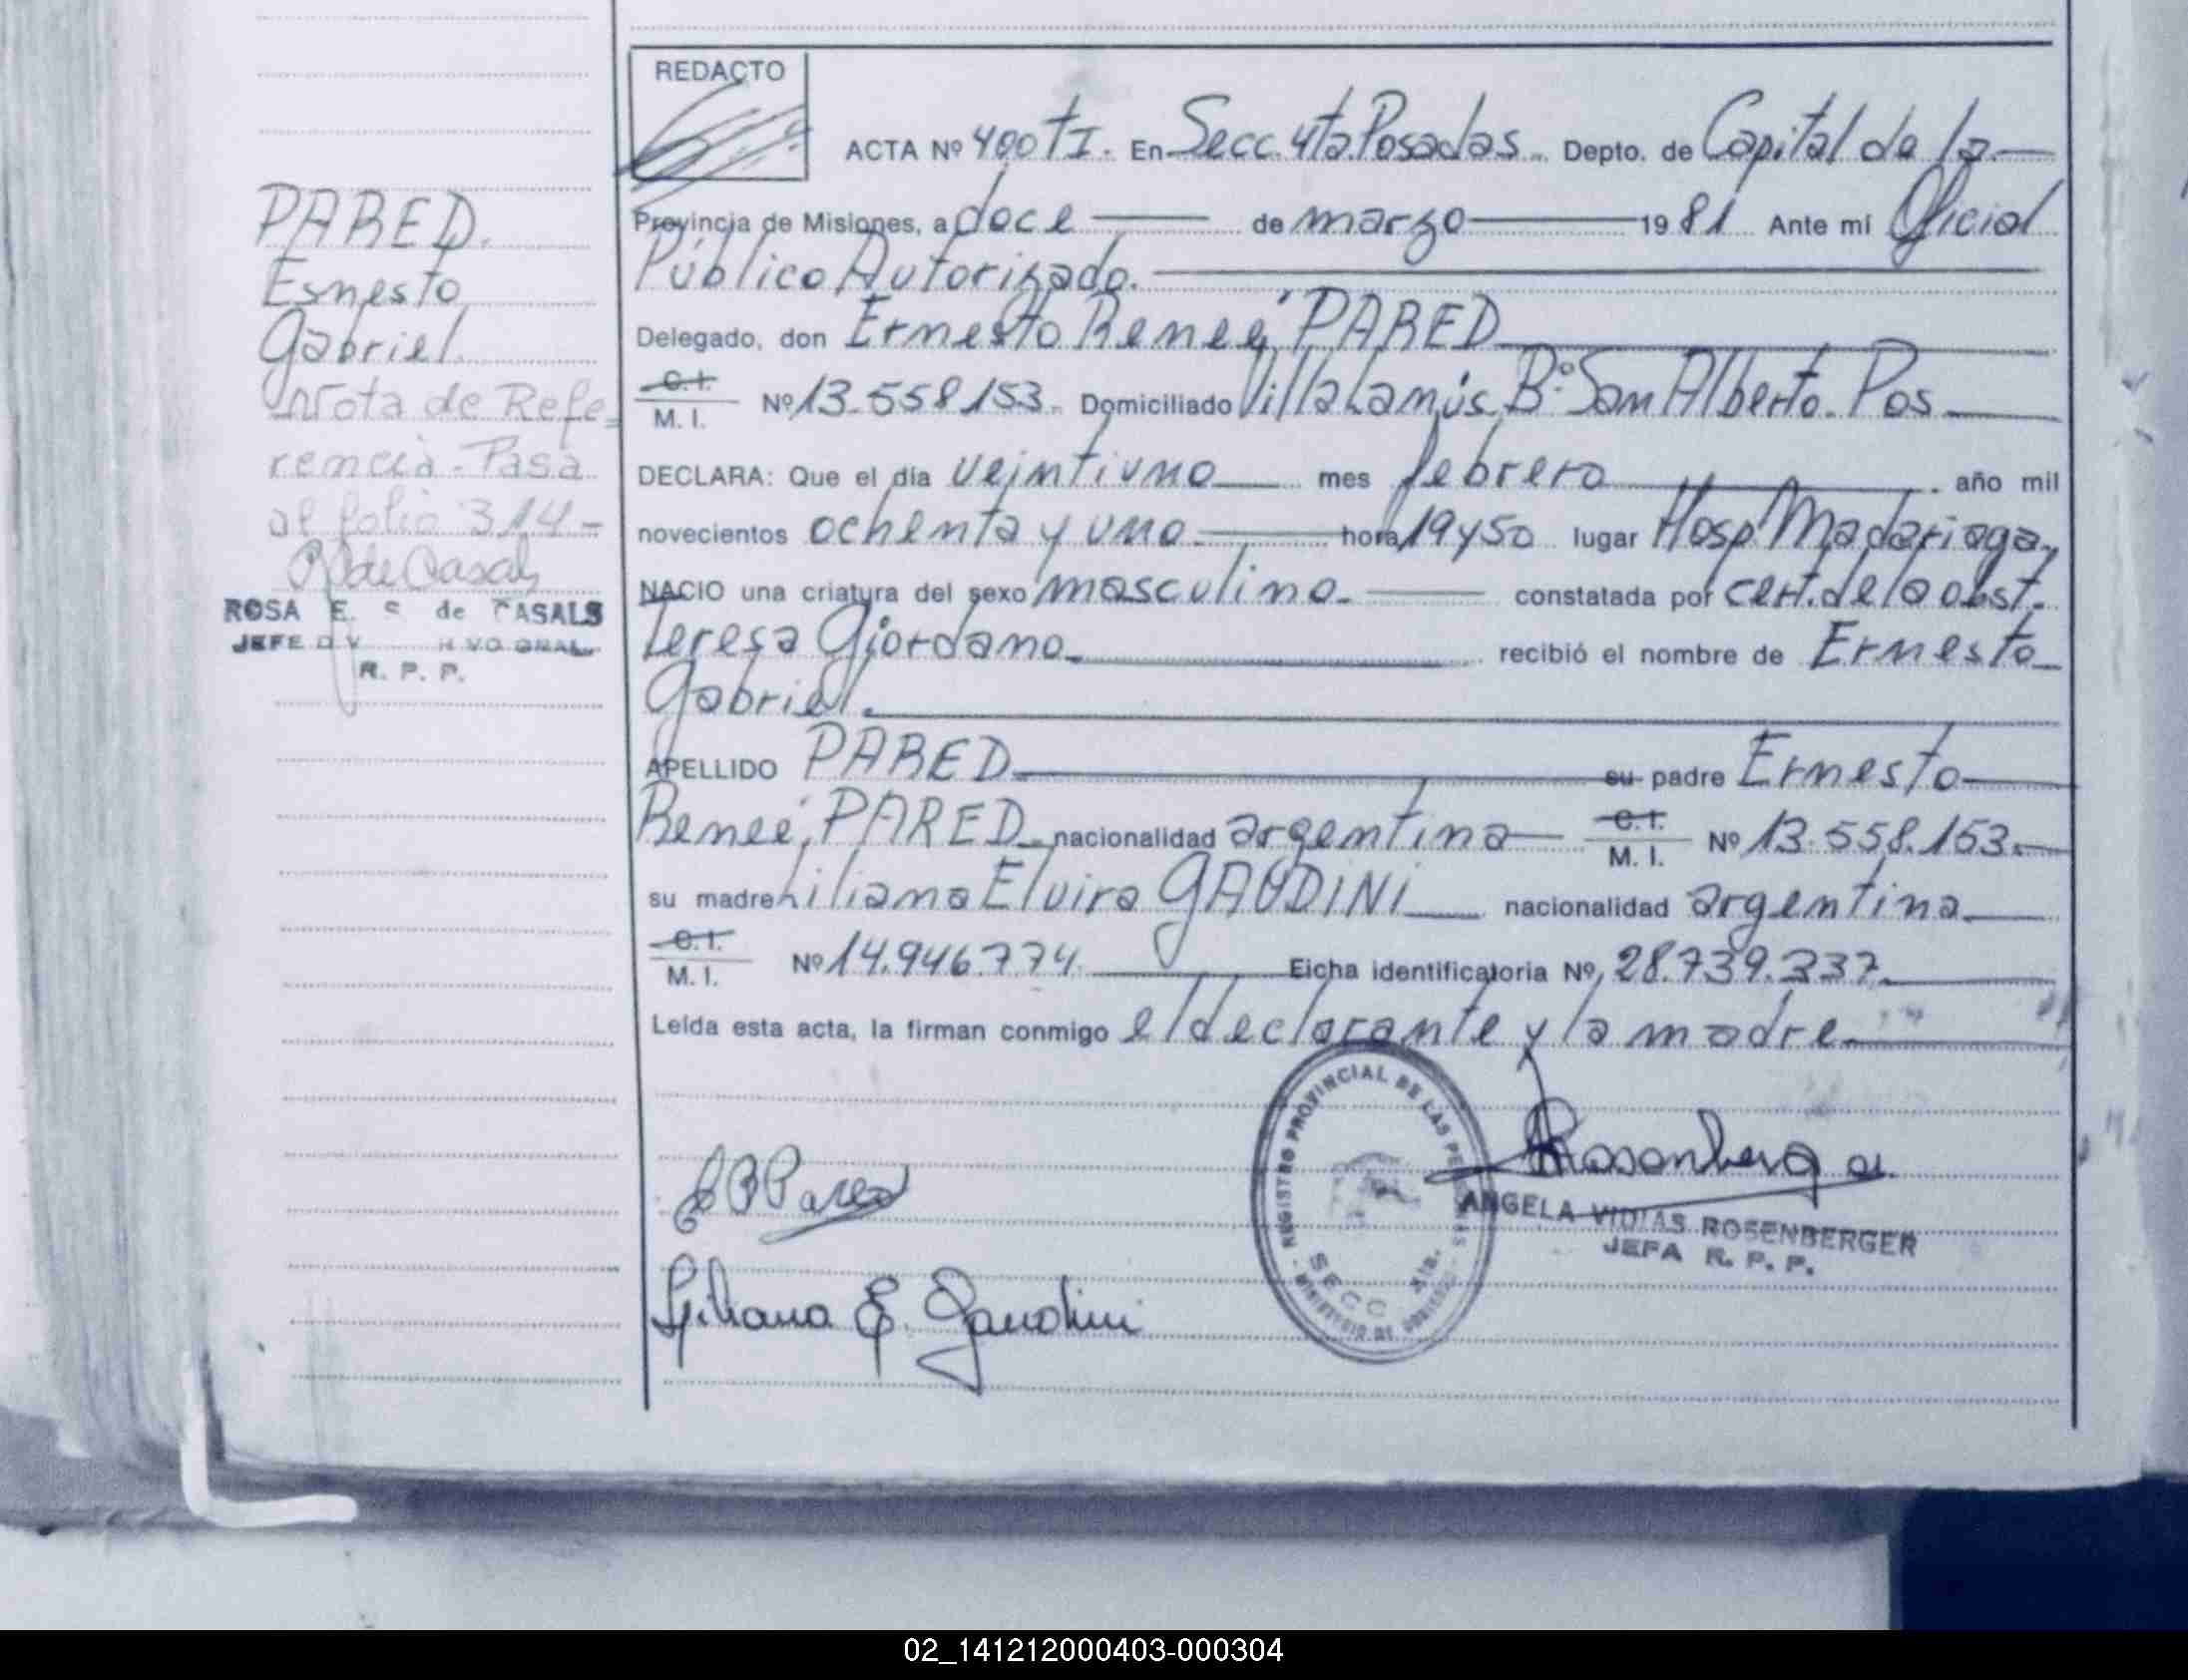 REDACTO
ACTA Nº 400 tI. En Secc. 4ta. Posadas. Depto. de Capital de la
Provincia de Misiones, a doce de marzo 19 81 Ante mi Oficial
Público Autorizado.
Delegado, don Ernesto Reneé PARED
C.I.
M. I. Nº 13.558.153. Domiciliado Villa Lanús. Bº. San Alberto. Pos
DECLARA: Que el día veintiuno mes febrero año mil
novecientos ochenta y uno hora 19 y 50 lugar Hosp. Madariaga,
NACIO una criatura del sexo masculino. constatada por cert. de la obst.
Teresa Giordano recibió el nombre de Ernesto
Gabriel.
APELLIDO PARED su padre Ernesto
Reneé, PARED nacionalidad argentina C.I.
M. I. Nº 13.558.153.
su madre Liliana Elvira GAUDINI nacionalidad argentina
C.I.
M. I. Nº 14.946.774. Ficha identificatoria Nº 28.739.337.
Leída esta acta, la firman conmigo el declarante y la madre
PARED.
Ernesto
Gabriel.
Nota de Refe=
rencia - Pasa
al folio 314-
R de Casals
ROSA E. S. de CASALS
R. P. P.
E R Pared
Liliana E. Gaudini
REGISTRO PROVINCIAL DE LAS PERSONAS
SECC 4ta.
MINISTERIO DE GOBIERNO
Rosenberger
ANGELA VIDIAS ROSENBERGER
JEFA R. P. P.
02_141212000403-000304